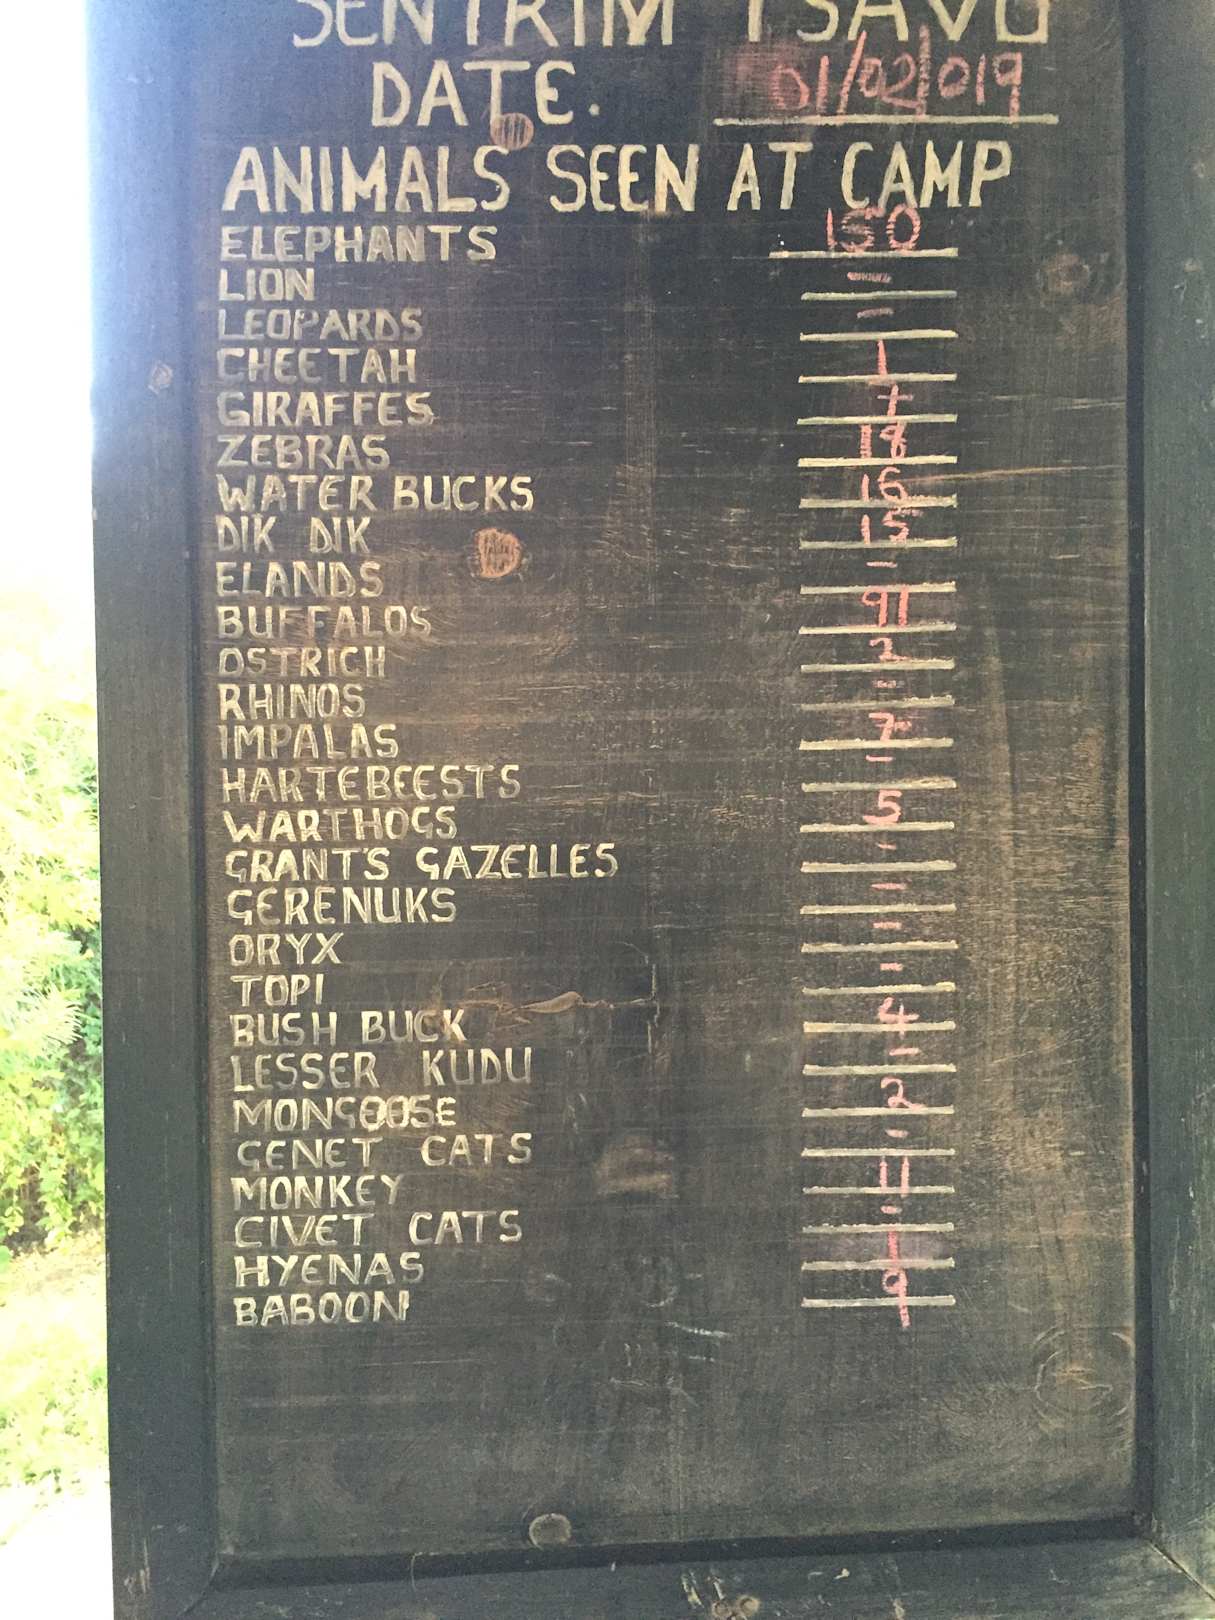 SENTRIM TSAVO
DATE. 01/02/019
ANIMALS SEEN AT CAMP
ELEPHANTS 150
LION -
LEOPARDS -
CHEETAH 1
GIRAFFES 7
ZEBRAS 18
WATER BUCKS 16
DIK DIK 15
ELANDS -
BUFFALOS
OSTRICH 2
RHINOS -
IMPALAS 7
HARTEBEESTS -
WARTHOGS 5
GRANT'S GAZELLES -
GERENUKS -
ORYX -
TOPI -
BUSH BUCK 4
LESSER KUDU -
MONGOOSE 2
GENET CATS -
MONKEY 11
CIVET CATS -
HYENAS 1
BABOON 9